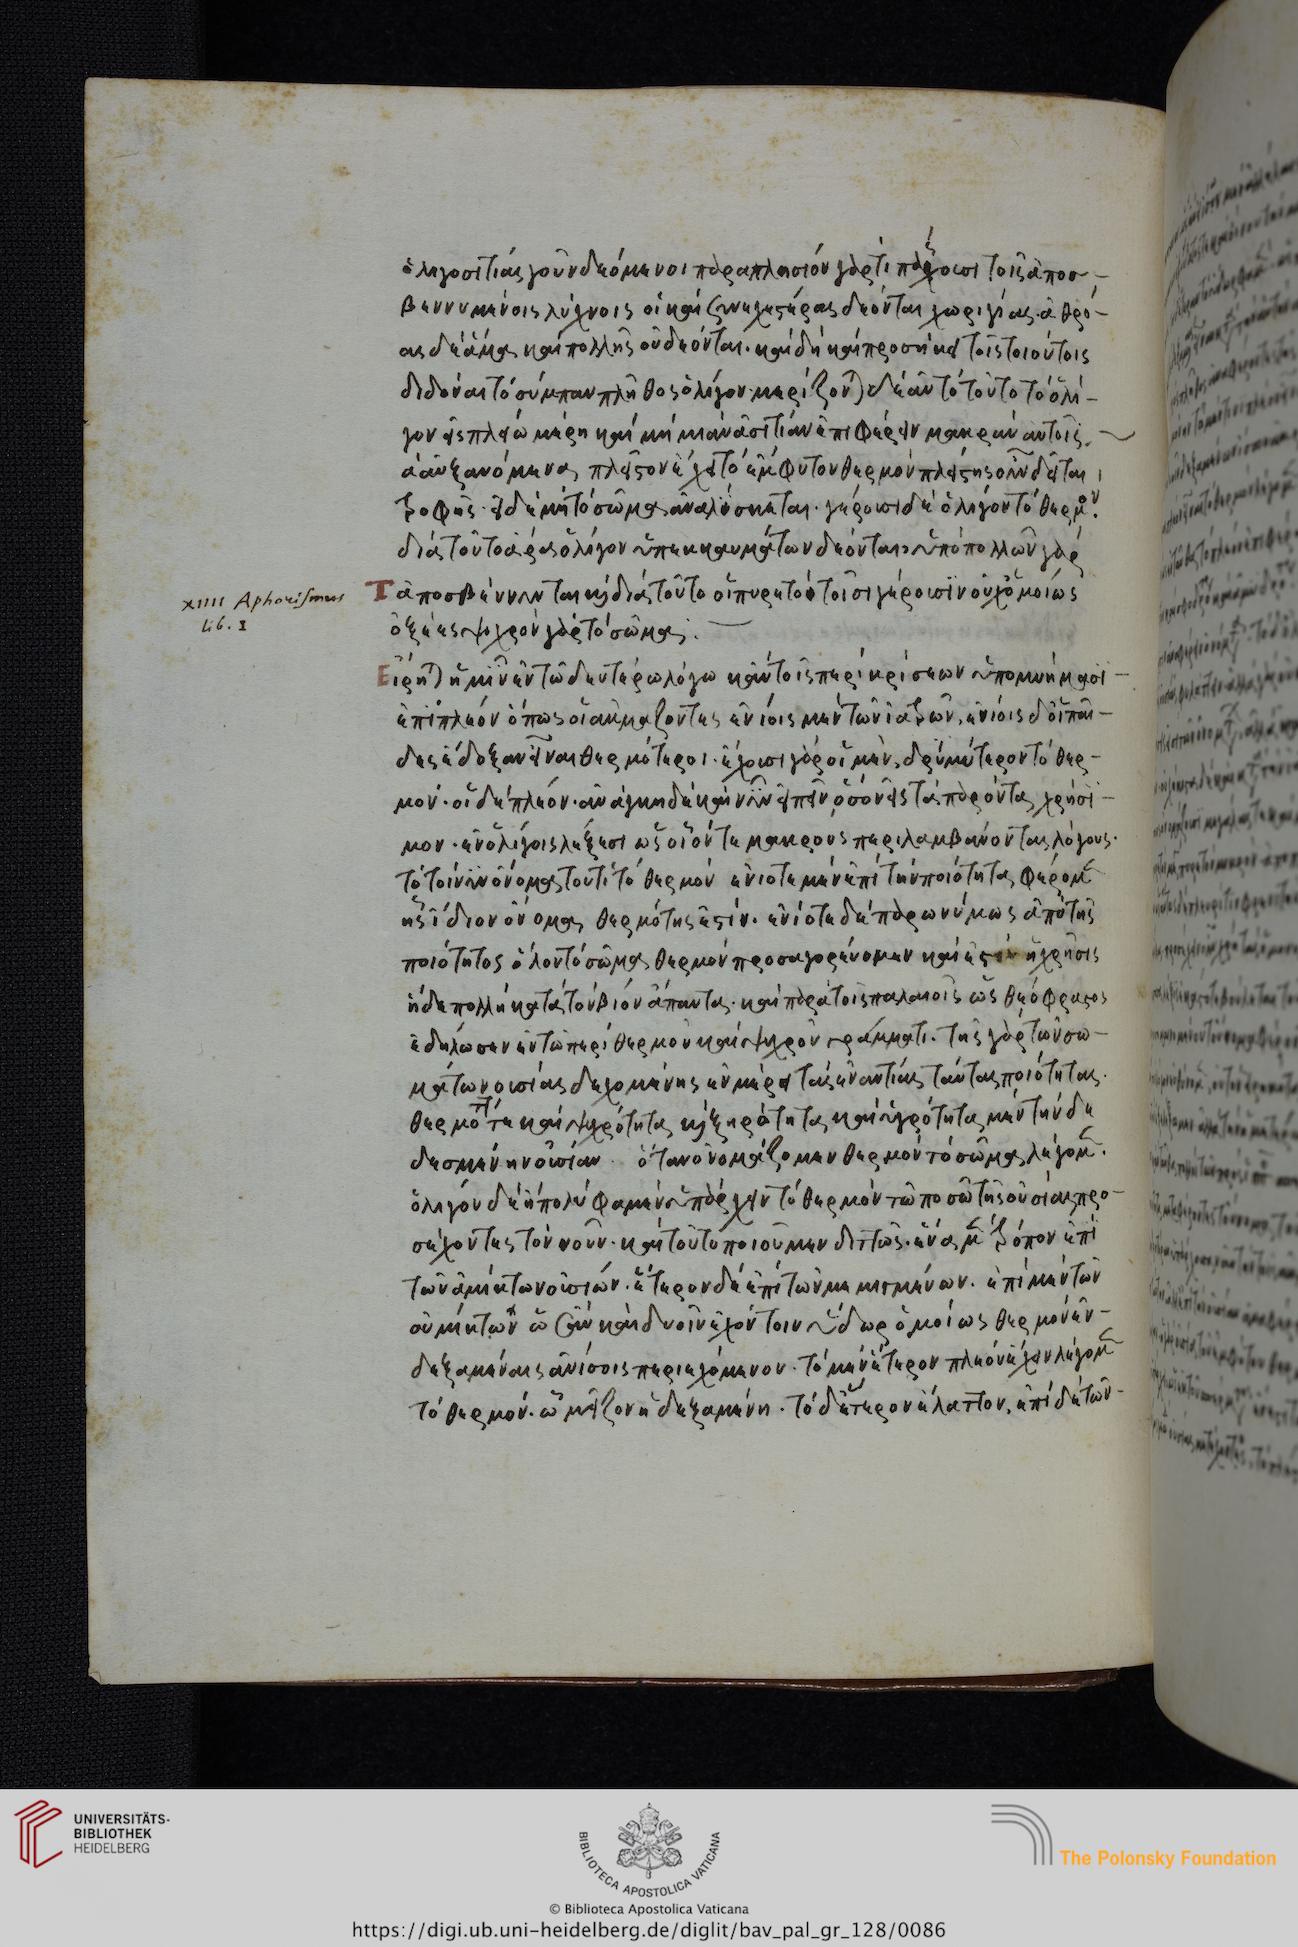 ὀλιγοσιτίας γοῦν δεόμενοι παραπλησιόν γάρ τι πάσχουσι τοῖς ἀποσ-
βεννυμένοις λύχνοις οἳ καὶ συνεχεστέρας δέονται χωριγίας ἀθρό-
ας δὲ ἅμα καὶ πολλῆς οὐ δέονται. καὶ δὴ καὶ προσήκει τοῖς τοιούτοις
διδόναι τὸ σύμπαν πλῆθος ὀλίγον μερίζοντ δὲ αὐτὸ τοῦτο τὸ ὀλί-
γον εἰς πλείω μέρη καὶ μὴ μίαν ἀσιτίαν ἐπιφέρειν μακρὰν αὐτοῖς.
ἀαὐξανόμενα πλεῖστον ἔχει τὸ ἔμφυτον θερμὸν πλείστης οὖν δεῖται
τροφῆς· εἰ δὲ μὴ τὸ σῶμα ἀναλίσκεται· γέρουσι δὲ ὀλίγον τὸ θερμόν.
διὰ τοῦτο ἄρα ὀλίγον ὑπεκκαυμάτων δέονται ὑπὸ πολλῶν γὰρ
XIIII Aphorismus lib. I
Τἀποσβέννυνται καὶ διὰ τοῦτο οἱ πυρετοὶ τοῖσι γέρουσιν οὐχ ὁμοίως
ὀξέες ψυχρὸν γὰρ τὸ σῶμα.
Εἴρηται ἡμῖν ἐν τῶ δευτέρω λόγω κἀν τοῖς περὶ κρίσεων ὑπομνήμασι
ἐπὶ πλέον ὅπως οἱ ἀκμάζοντες ἐνίοις μὲν τῶν ἰατρῶν, ἐνίοις δ' οἱ παῖ-
δες ἔδοξαν εἶναι θερμότεροι. ἔχουσι γὰρ οἱ μὲν, δριμύτερον τὸ θερ-
μόν. οἱ δὲ πλέον. ἀνάγκη δὲ καὶ νῦν εἰπεῖν ὅσον εἰς τὰ παρόντα χρήσι-
μον. ἐν ὀλίγοις λέξεσι ὡς οἷόν τε μακροὺς περιλαμβάνοντας λόγους.
τὸ τοίνυν ὄνομα τουτὶ τὸ θερμὸν ἐνίοτε μὲν ἐπὶ τὴν ποιότητα φέρομεν
ἧς ἴδιον ὄνομα θερμότης ἐστίν. ἐνίοτε δὲ παρωνύμως ἀπὸ τῆς
ποιότητος ὅλον τὸ σῶμα θερμὸν προσαγορεύομεν καὶ ἐστιν ἡ χρῆσις
ἥδε πολλὴ κατὰ τὸν βίον ἅπαντα. καὶ παρὰ τοῖς παλαιοῖς ὡς θεόφραστος
ἐδήλωσεν ἐν τῶ περὶ θερμοῦ καὶ ψυχροῦ γράμματι. τῆς γὰρ τῶν σω-
μάτων οὐσίας δεχομένης ἐν μέρει τὰς ἐναντίας ταύτας ποιότητας.
θερμότητα καὶ ψυχρότητα καὶ ξηρότητα καὶ ὑγρότητα μέν τὴν δε
δεσμένην οὐσίαν ὅταν ὀνομάζομεν θερμὸν τὸ σῶμα λέγομεν.
ὀλιγόν δὲ ἢ πολὺ φαμὲν ὑπάρχειν τὸ θερμὸν τῶ ποσῶ τῆς οὐσίας προ-
σέχοντες τὸν νοῦν. καὶ τοῦτο ποιοῦμεν διττῶς. ἕνα μὲν τρόπον ἐπὶ
τῶν ἀμίκτων οὐσιῶν. ἕτερον δὲ ἐπὶ τῶν μεμιγμένων. ἐπὶ μὲν τῶν
οὐ μίκτων ὡς ἂν κἀν δυοῖν ἐχόντοιν ὕδωρ ὁμοίως θερμὸν ἐν-
δεξαμέναις ἀνίσοις περιεχόμενον. τὸ μὲν ἕτερον πλέον ἔχειν λέγομεν
τὸ θερμόν. ὧ μεῖζον ἡ δεξαμένη. τὸ δ' ἕτερον ἔλαττον, ἐπὶ δὲ τῶν
UNIVERSITÄTS-
BIBLIOTHEK
HEIDELBERG
BIBLIOTECA APOSTOLICA VATICANA
© Biblioteca Apostolica Vaticana
The Polonsky Foundation
https://digi.ub.uni-heidelberg.de/diglit/bav_pal_gr_128/0086